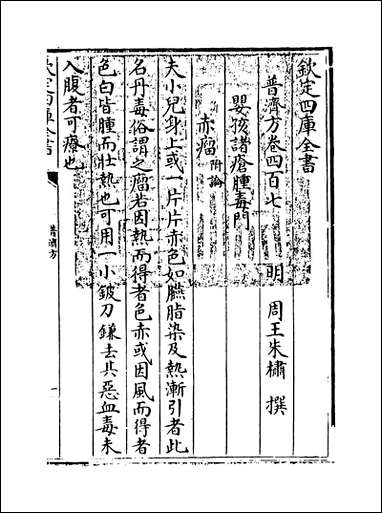 欽定四庫全書
普濟方卷四百七
明 周王朱橚 撰
嬰孩諸瘡腫毒門
赤瘤附論
夫小兒身上或一片片赤色如臙脂染及熱漸引者此
名丹毒俗謂之瘤若因熱而得者色赤或因風而得者
色白皆腫而壯熱也可用一小鈹刀鎌去其惡血毒未
入腹者可療也
欽定四庫全書
普濟方
一